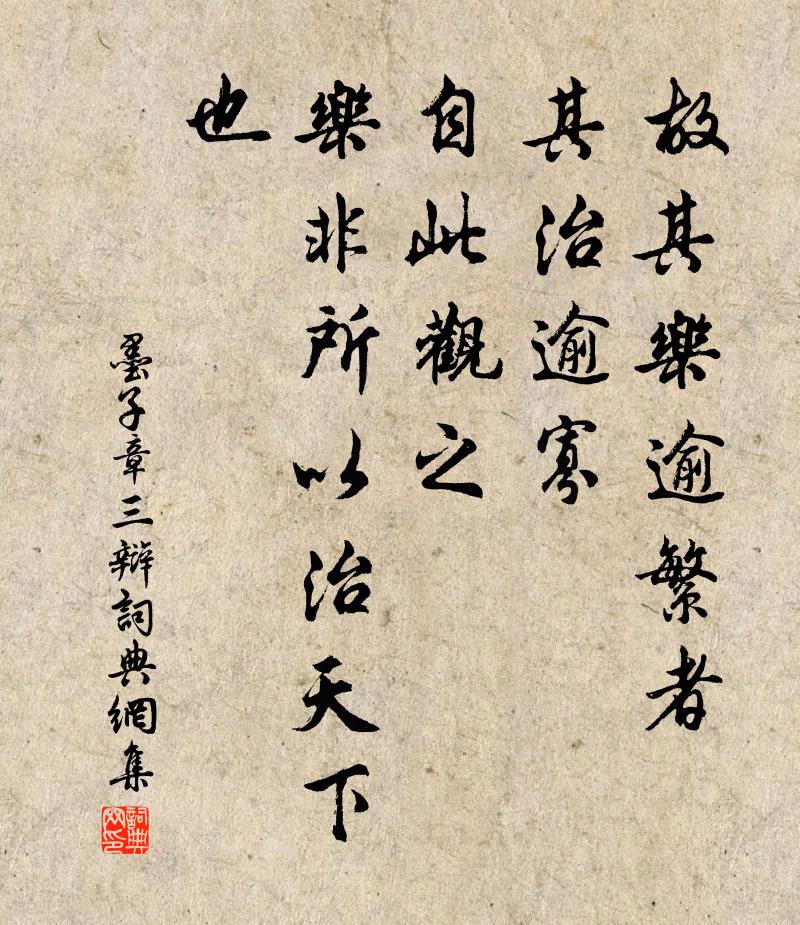 故其樂逾繁者
其治逾寡
自此觀之
樂非所以治天下
也
墨子章三辯詞典網集
詞典网印